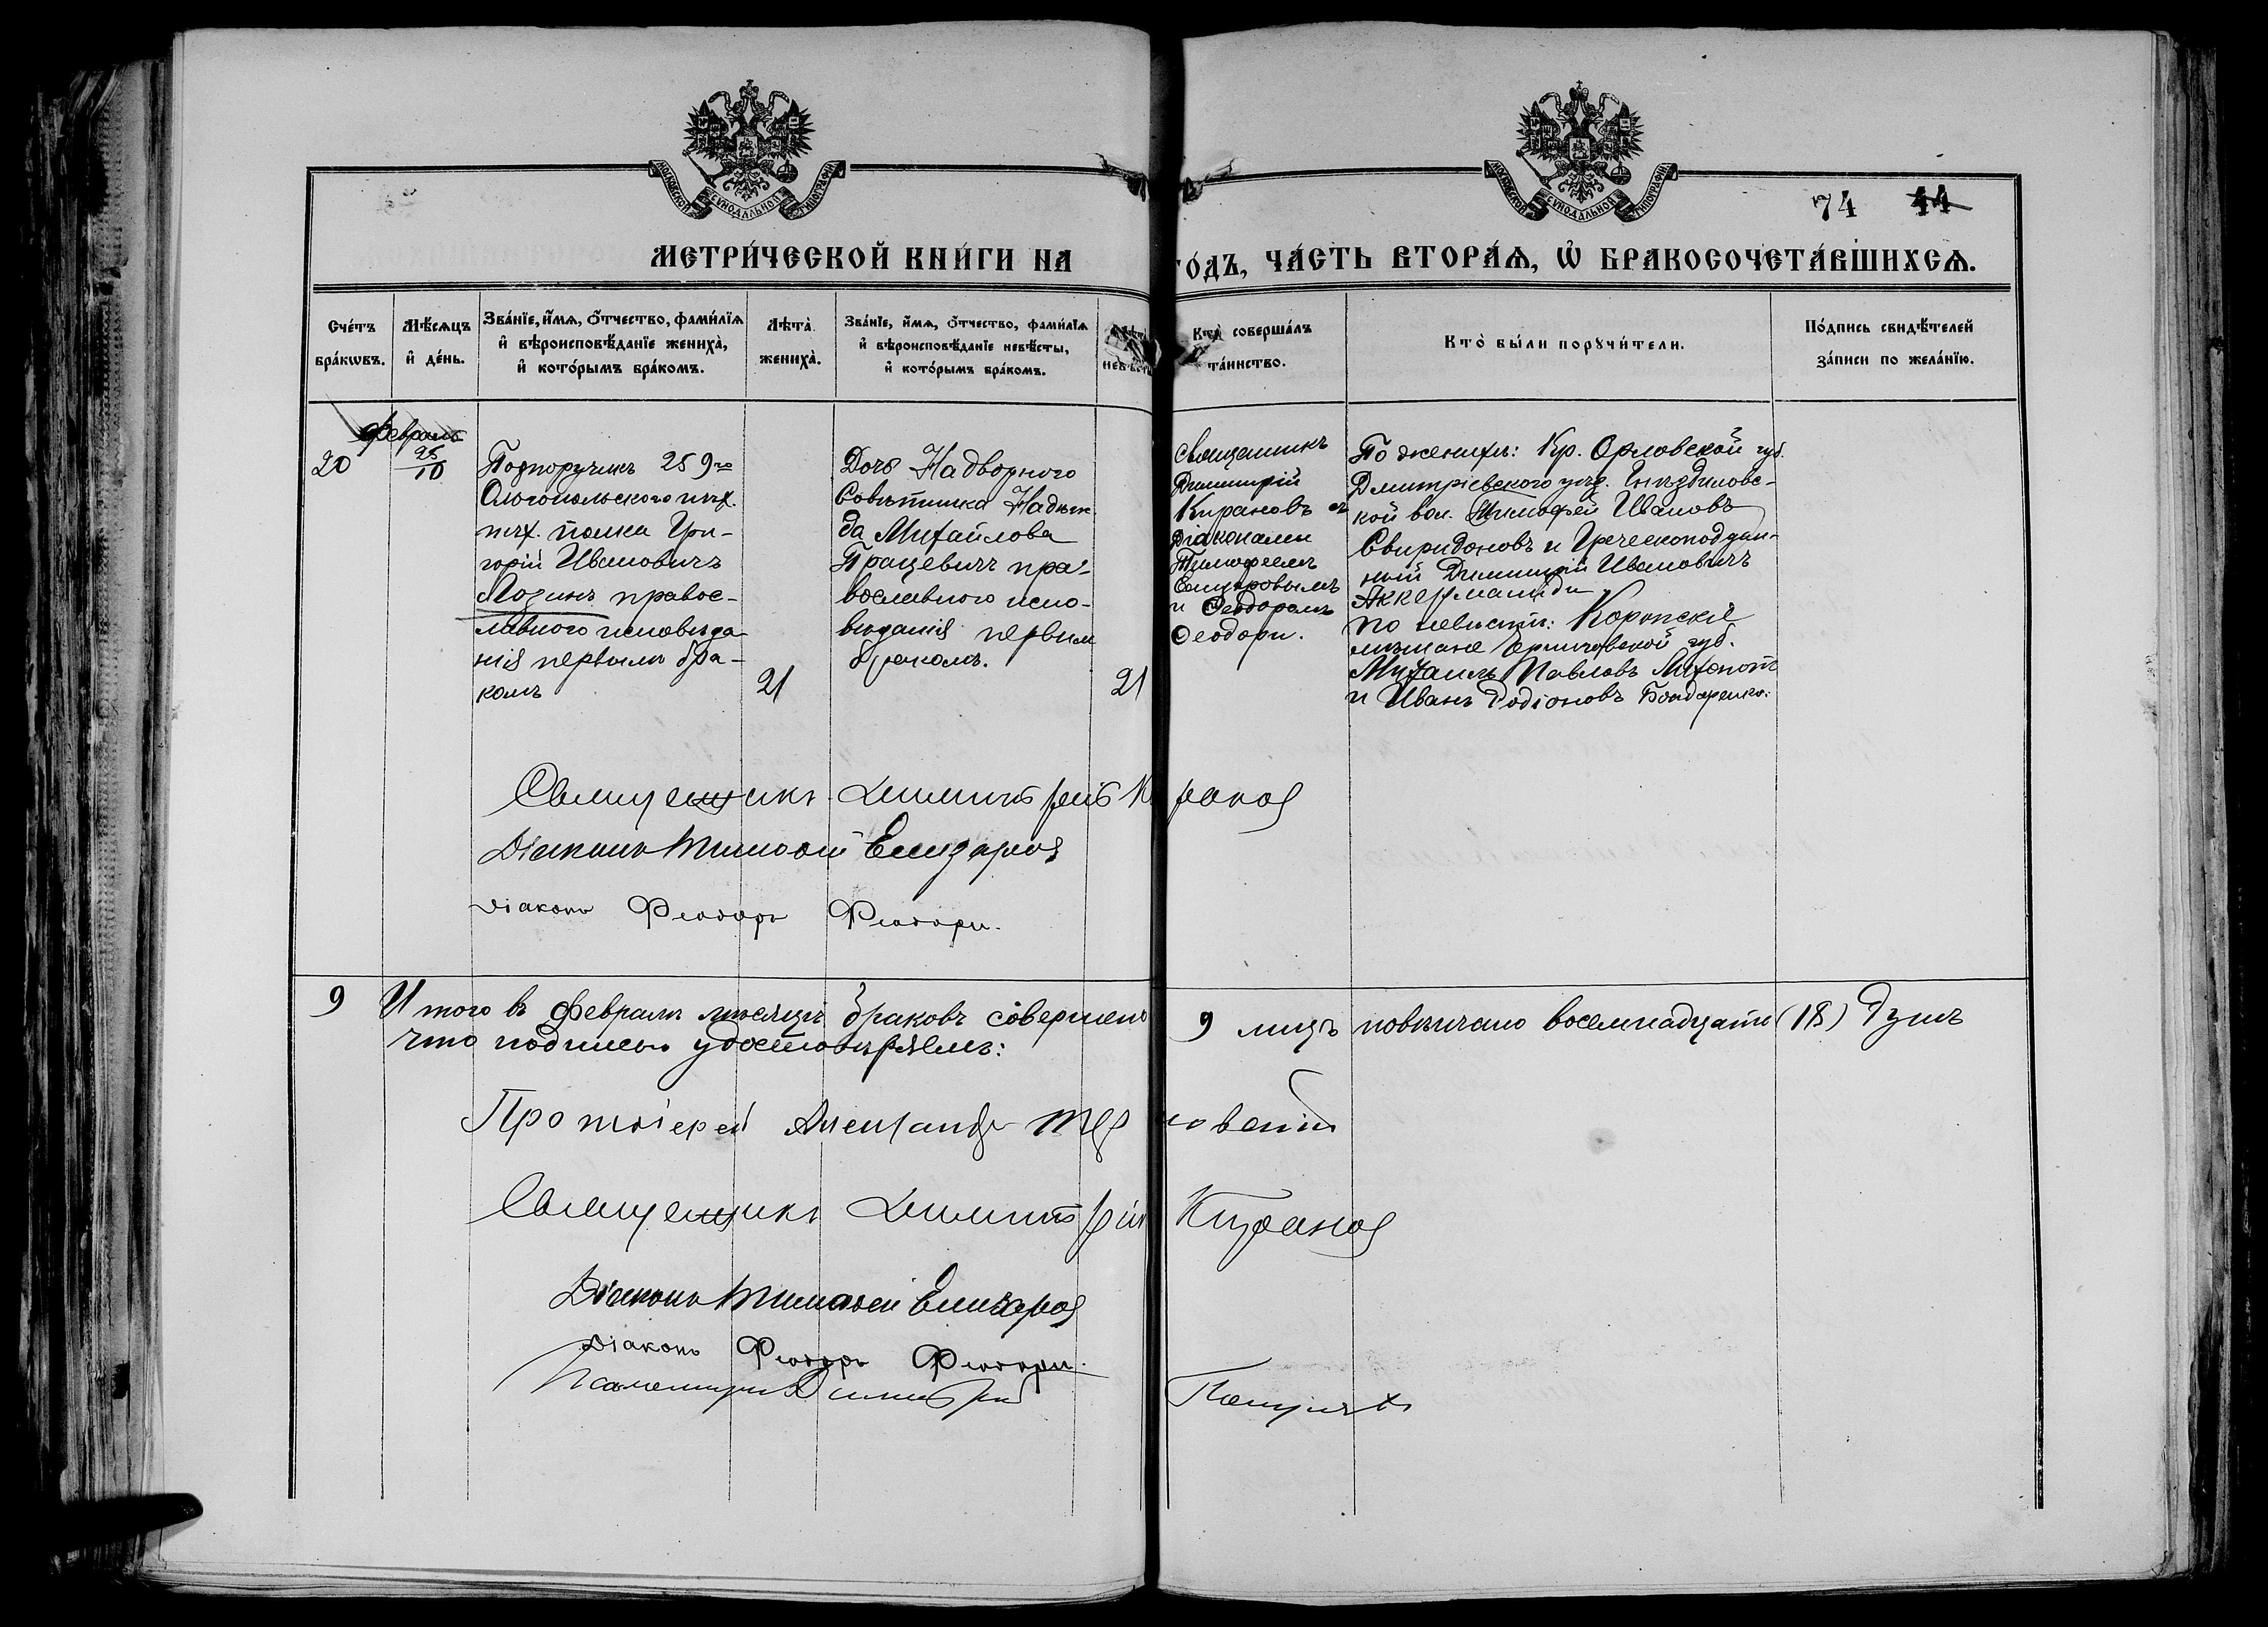 МОСКОВСКОЙ СѴНОДАЛЬНОЙ ТИПОГРАФІИ
МОСКОВСКОЙ СѴНОДАЛЬНОЙ ТИПОГРАФІИ
74 44
МЕТРИ́ЧЕСКОЙ КНИ́ГИ НА
ГО́ДЪ, ЧА́СТЬ ВТОРА́Ѧ, Ѡ БРАКОСОЧЕТА́ВШИХСѦ.
Сче́тъ бра́кѡвъ.
Мѣ́сѧцъ и҆ де́нь.
Зва́нїе, и҆́мѧ, ѻ҆́тчество, фами́лїѧ
и҆ вѣроисповѣ́данїе жениха̀,
и҆ кото́рымъ бра́комъ.
Лѣта̀ жениха̀.
Зва́нїе, и҆́мѧ, ѻ҆́тчество, фами́лїѧ
и҆ вѣроисповѣ́данїе невѣ́сты,
и҆ кото́рымъ бра́комъ.
Лѣта̀ невѣ́сты
Кто̀ соверша́лъ
та́инство.
Кто̀ бы́ли порꙋчи́тели.
По́дпись свидѣ́телей
за́писи по жела́нїю.
Февраль
20
25/10
Подпоручикъ 259го
Ольгопольского пѣх.
пѣх. полка Гри-
горій Ивановичъ
Лозинъ правос-
лавного исповѣда
нія первымъ бра-
комъ
21
Дочь Надворного
Совѣтника Надѣж
да Михайлова
Працевичъ пра-
вославного испо-
вѣданія первым
бракомъ.
21
Священникъ
Димитрій
Кирановъ съ
діаконами
Тимофеемъ
Елизаровымъ
и Феодоромъ
Феодори.
По женихѣ: Кр. Орловской губ.
Дмитріевского уѣзд. Гнѣздиловс-
кой вол. Тимофей Ивановъ
Свиридоновъ и Греческоподдан-
ный Димитрій Ивановичъ
Аккерманиди
по невѣсте: Коропскіе
мѣщане Черниговской губ.
Михаилъ Павловъ Михенотъ
и Иванъ Родіоновъ Бондаренко:
Священникъ Димитрій Киранов
Діаконъ Тимофей Елизаров
Діаконъ Феодоръ Феодори.
9 Итого въ Февралѣ мѣсяцѣ браковъ совершено 9 лицъ повѣнчано восемнадцать (18) душъ
что подписью удостовѣряемъ:
Протоіерей Александръ Терновскій
Священникъ Димитрій Киранов
Діаконъ Тимофей Елизаров
Діаконъ Феодоръ Феодори.
Псаломщикъ Димитрій